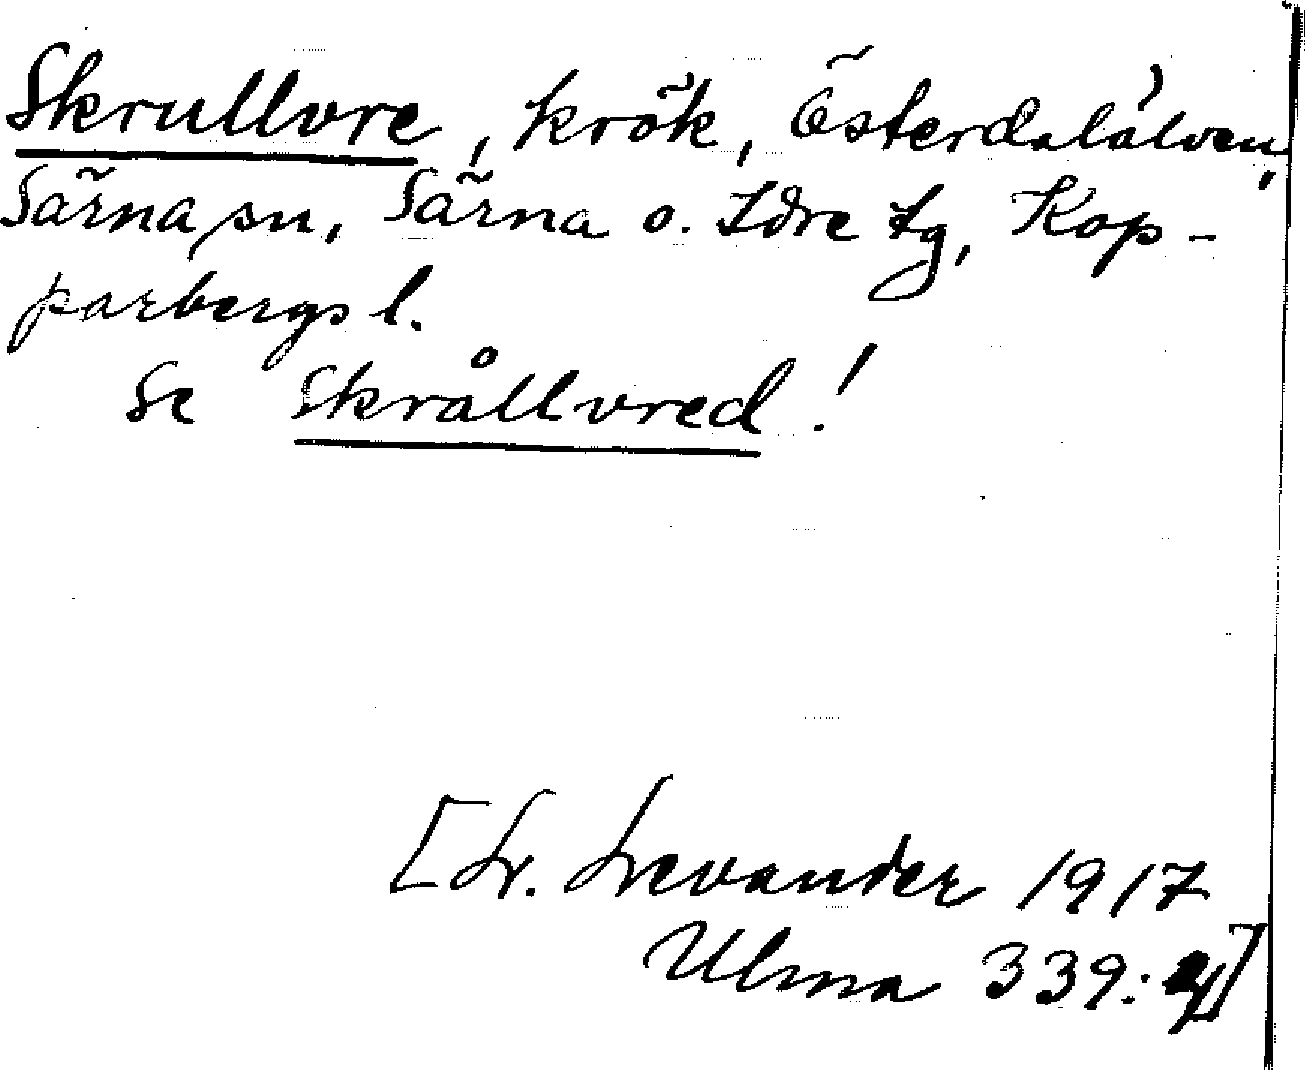 Skrullvre, krök, Österdalälven,
Särna sn, Särna o. Idre tg, Kop-
parbergs l.
Se Skrållvred!
[L. Levander 1917
Ulma 339: